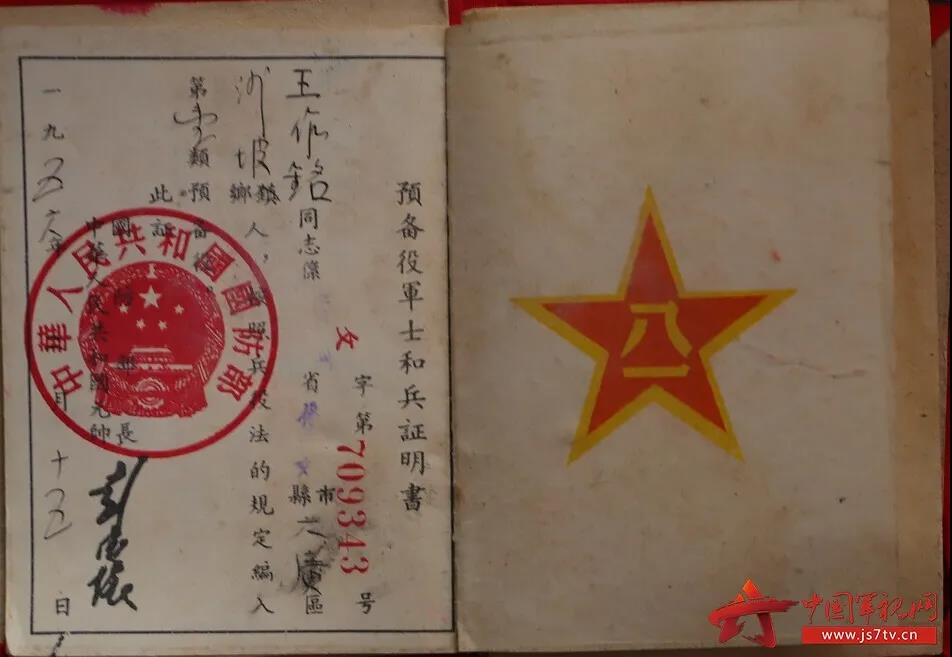 預备役軍士和兵証明書
字第709343号
王作銘同志
省
縣市
區
沙坡鄉鎮人，按照兵役法的規定編入
第壹類預备役。
此証
國防部長
中華人民共和國元帥
彭德懷
一九五六年 月十五日
中華人民共和國國防部
八一
中国军视网
www.js7tv.cn